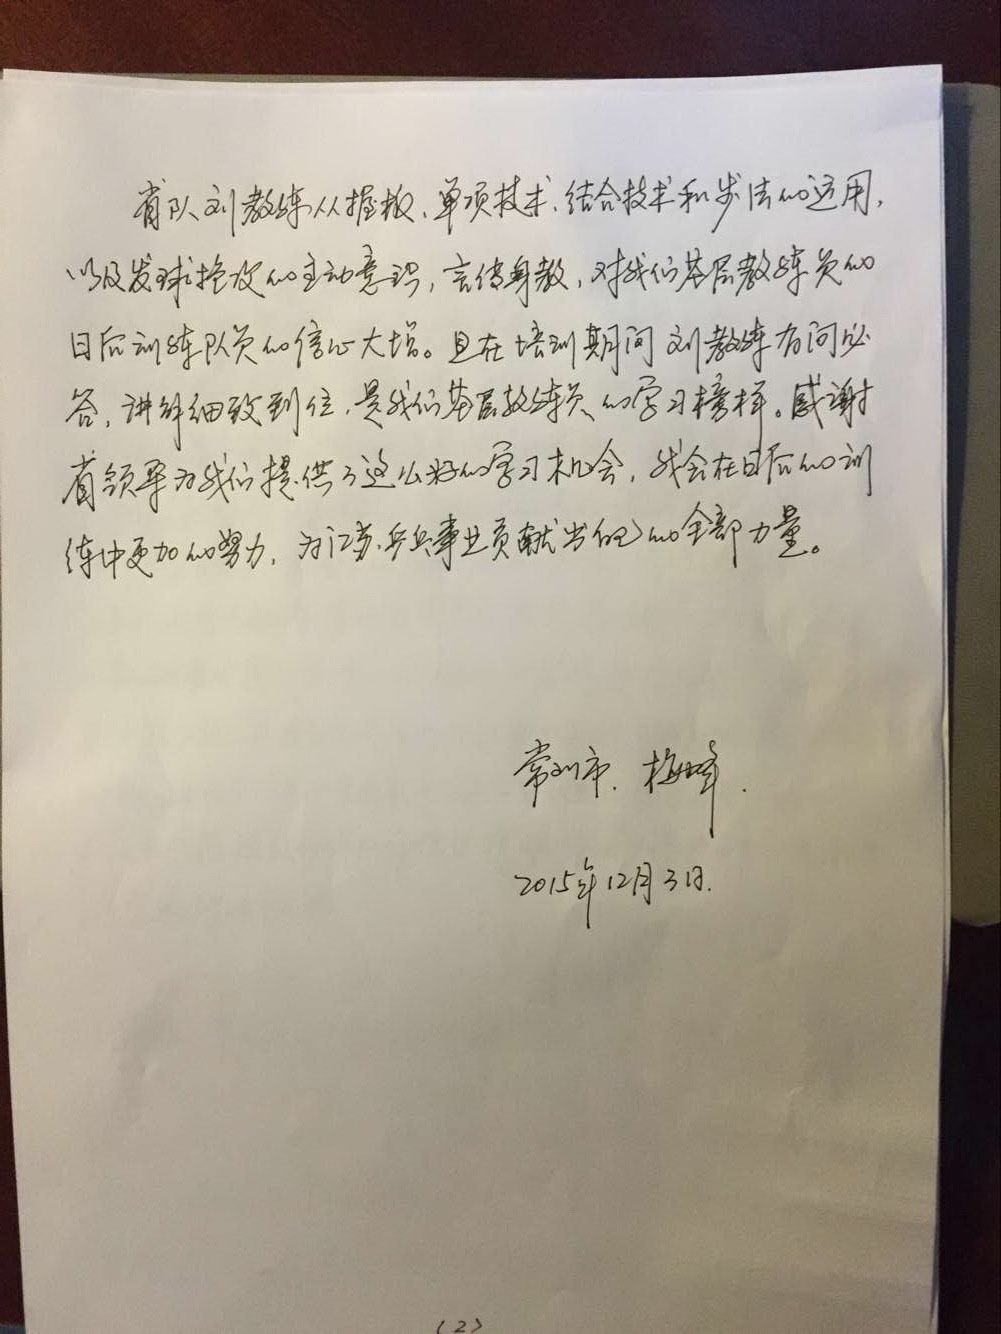 省队刘教练从握板、单项技术、结合技术和步法的运用,
以及发球抢攻的主动意识,言传身教,对我们基层教练员的
日后训练队员的信心大增。且在培训期间刘教练有问必
答,讲解细致到位,是我们基层教练员的学习榜样。感谢
省领导为我们提供了这么好的学习机会,我会在日后的训
练中更加的努力,为江苏乒乓事业贡献出自己的全部力量。
常州市. 梅峰.
2015年12月3日.
(2)